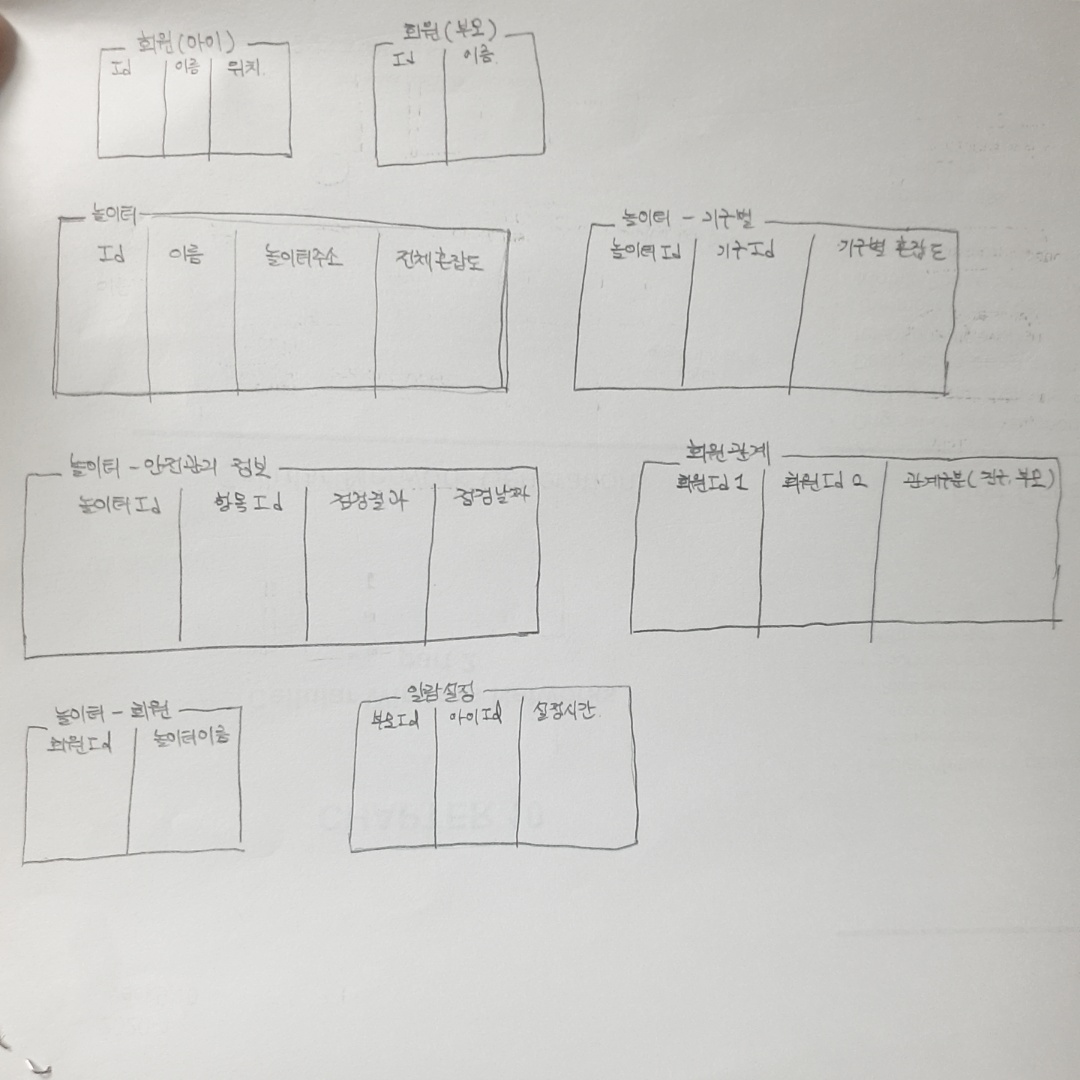 회원(아이)
Id 이름 위치
회원(부모)
Id 이름
놀이터
Id 이름 놀이터주소 전체혼잡도
놀이터 - 기구별
놀이터Id 기구Id 기구별 혼잡도
놀이터 - 안전관리 정보
놀이터Id 항목Id 점검결과 점검날짜
회원관계
회원Id1 회원Id2 관계구분(친구, 부모)
놀이터 - 회원
회원Id 놀이터이름
알람설정
부모Id 아이Id 설정시간